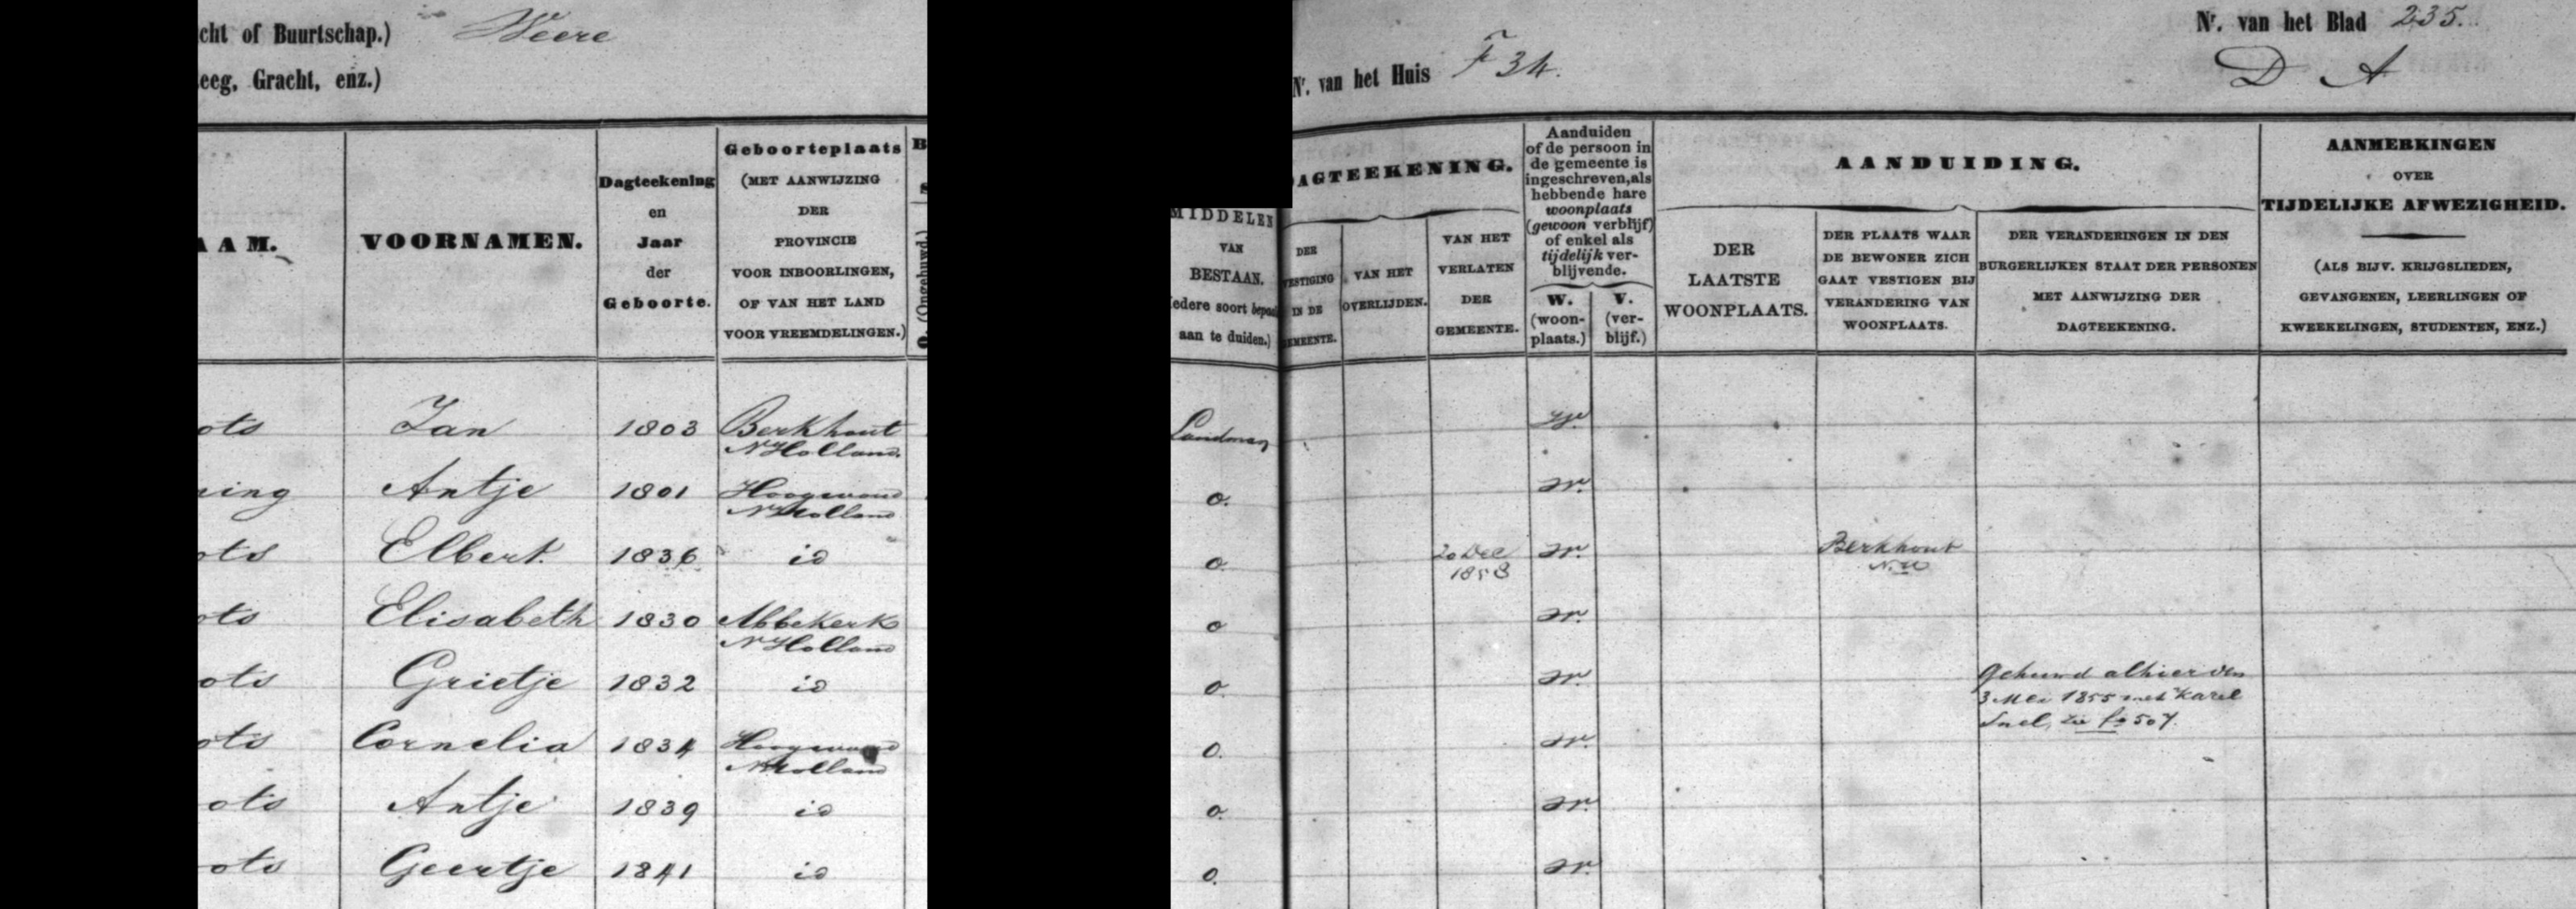 cht of Buurtschap.) Weere
eeg, Gracht, enz.)
Nr. van het Huis F 34.
Nr. van het Blad 235.
D A
AAM.
VOORNAMEN.
Dagteekening
en
Jaar
der
Geboorte.
Geboorteplaats
(MET AANWIJZING
DER
PROVINCIE
VOOR INBOORLINGEN,
OF VAN HET LAND
VOOR VREEMDELINGEN.)
O. (Ongehuwd.)
MIDDELEN
VAN
BESTAAN.
edere soort bepaal
aan te duiden.)
DAGTEEKENING.
DER
VESTIGING
IN DE
GEMEENTE.
VAN HET
OVERLIJDEN.
VAN HET
VERLATEN
DER
GEMEENTE.
Aanduiden
of de persoon in
de gemeente is
ingeschreven, als
hebbende hare
woonplaats
(gewoon verblijf)
of enkel als
tijdelijk ver-
blijvende.
W.
(woon-
plaats.)
V.
(ver-
blijf.)
AANDUIDING.
DER
LAATSTE
WOONPLAATS.
DER PLAATS WAAR
DE BEWONER ZICH
GAAT VESTIGEN BIJ
VERANDERING VAN
WOONPLAATS.
DER VERANDERINGEN IN DEN
BURGERLIJKEN STAAT DER PERSONEN
MET AANWIJZING DER
DAGTEEKENING.
AANMERKINGEN
OVER
TIJDELIJKE AFWEZIGHEID.
(ALS BIJV. KRIJGSLIEDEN,
GEVANGENEN, LEERLINGEN OF
KWEEKELINGEN, STUDENTEN, ENZ.)
ots Jan 1803 Berkhout Landman W.
N Holland.
ning Antje 1801 Hoogwoud o. W.
N Holland
ots Elbert. 1836 id o. 20 Dec W. Berkhout
1858 N.H
ots Elisabeth 1830 Abbekerk o W.
N Holland
ots Grietje 1832 id o. W. Gehuwd alhier den
3 Mei 1855 met Karel
Snel, zie fo 507.
ots Cornelia 1834 Hoogwoud o. W.
N Holland
ots Antje 1839 id o. W.
ots Geertje 1841 id o. W.